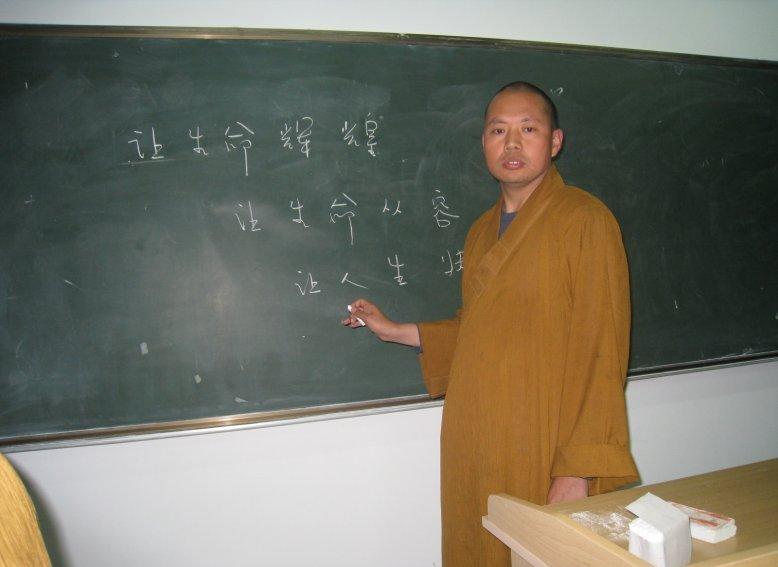 让生命辉煌
让生命从容
让人生